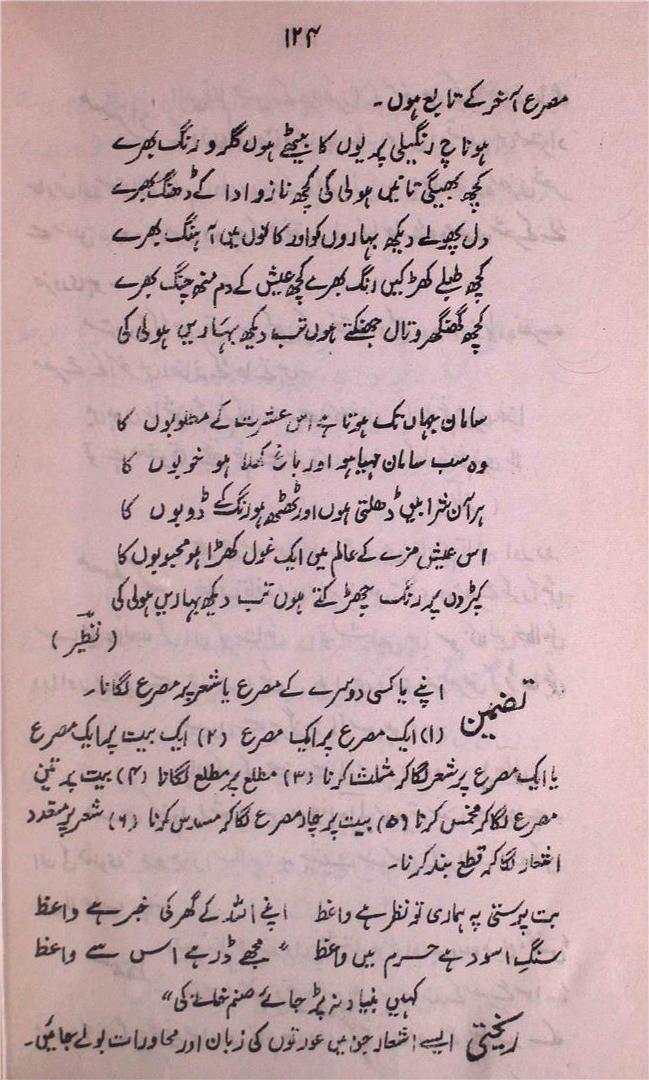 ۱۲۴
مصرع آخر کے تابع ہوں۔
ہو ناچ رنگیلی پریوں کا بیٹھے ہوں گلرو رنگ بھرے
کچھ بھیگی تانیں ہولی کی کچھ ناز و ادا کے ڈھنگ بھرے
دل پھولے دیکھ بہاروں کو اور کانوں میں آہنگ بھرے
کچھ طبلے کھڑکیں رنگ بھرے کچھ عیش کے دم منھ چنگ بھرے
کچھ گھنگھرو تال جھنکتے ہوں تب دیکھ بہاریں ہولی کی
سامان جہاں تک ہوتا ہے اس عشرت کے مطلوبوں کا
وہ سب سامان مہیا ہو اور باغ کھلا ہو خوبوں کا
ہر آن شرابیں ڈھلتی ہوں اور ٹھٹھ ہو رنگ کے ڈوبوں کا
اس عیش مزے کے عالم میں ایک غول کھڑا ہو محبوبوں کا
کپڑوں پر رنگ چھڑکتے ہوں تب دیکھ بہاریں ہولی کی
(نظیر)
تضمین اپنے یا کسی دوسرے کے مصرع یا شعر پر مصرع لگانا۔
(۱) ایک مصرع پر ایک مصرع (۲) ایک بیت پر ایک مصرع
یا ایک مصرع پر شعر لگا کر مثلث کرنا (۳) مطلع پر مطلع لگانا (۴) بیت پر تین
مصرع لگا کر مخمس کرنا (۵) بیت پر چار مصرع لگا کر مسدس کرنا (۶) شعر پر متعدد
اشعار لگا کر قطع بند کرنا۔
بت پرستی پہ ہماری تو نظر ہے واعظ اپنے اللہ کے گھر کی خبر ہے واعظ
سنگِ اسود ہے حرم میں واعظ "مجھے ڈر ہے اس سے واعظ
کہیں بنیاد نہ پڑ جائے صنم خانے کی"
ریختی ایسے اشعار جن میں عورتوں کی زبان اور محاورات بولے جائیں۔